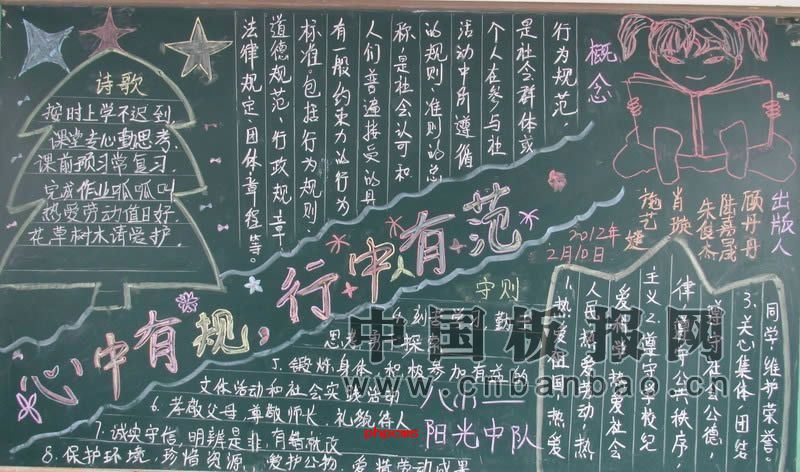 诗歌
按时上学不迟到,
课堂专心勤思考,
课前预习常复习,
完成作业呱呱叫
热爱劳动值日好,
花草树木请爱护,
概念
行为规范,
是社会群体或
个人在参与社
活动中所遵循
的规则、准则的总
称,是社会认可和
人们普遍接受的具
有一般约束力的行为
标准。包括行为规则、
道德规范、行政规章、
法律规定、团体章程等。
出版人
顾丹丹
陆嘉晟
朱俊杰
肖璇
施艺婕
2012年
2月10日
心中有规,行中有范
守则
1.热爱祖国,热爱
人民,热爱劳动,热
爱科学,热爱社会
主义 2.遵守学校纪
律,遵守公共秩序
遵守社会公德,
3.关心集体,团结
同学,维护荣誉,
刻苦学习 勤
思考 探究
5.锻炼身体,积极参加有益的
文体活动和社会实践活动
6.孝敬父母,尊敬师长,礼貌待人
7.诚实守信,明辨是非,有错就改
8.保护环境,珍惜资源,爱护公物,爱惜劳动成果
八(一)
阳光中队
中国板报网
www.cnbanbao.cn
phpcms